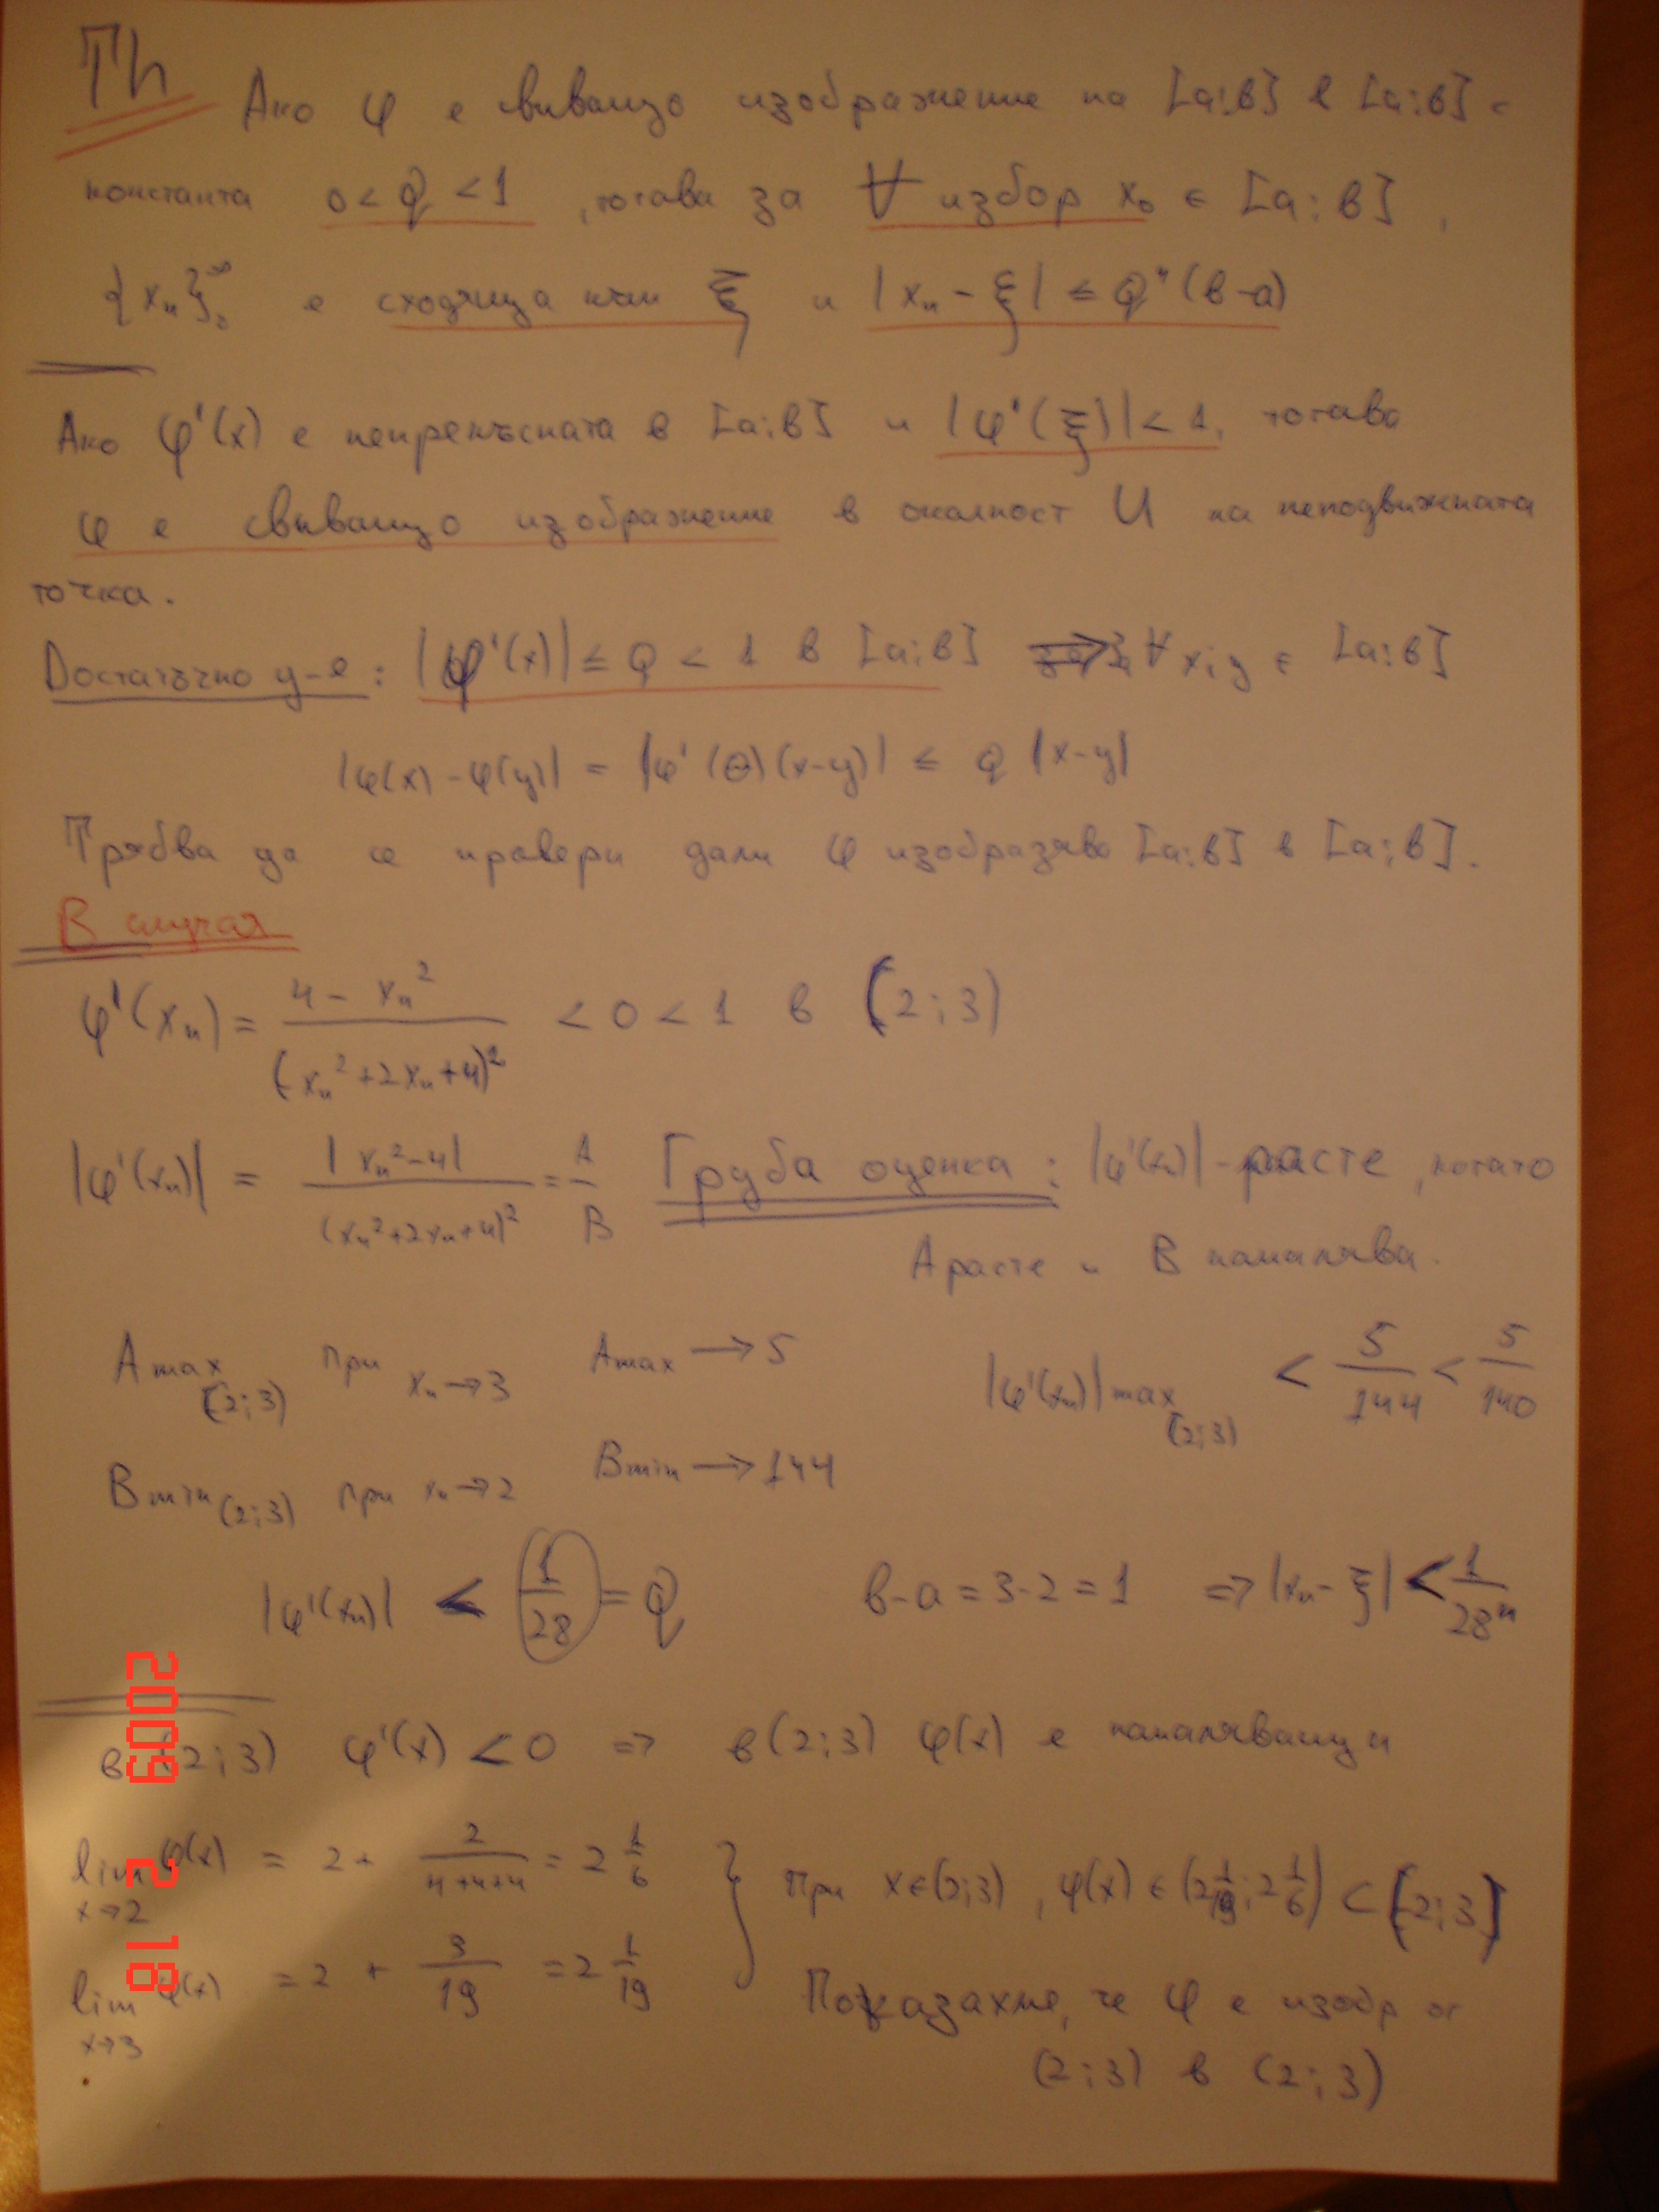 Th Ако φ е свиващо изображение на [a;b] в [a;b] с
константа 0 < Q < 1, тогава за ∀ избор x₀ ∈ [a;b],
{xₙ}₀^∞ е сходяща към ξ и |xₙ - ξ| ≤ Qⁿ(b-a)
Ако φ'(x) е непрекъсната в [a;b] и |φ'(ξ)| < 1, тогава
φ е свиващо изображение в околност U на неподвижната
точка.
Достатъчно у-е: |φ'(x)| ≤ Q < 1 в [a;b] ∀ x;y ∈ [a;b]
|φ(x) - φ(y)| = |φ'(θ)(x-y)| ≤ Q |x-y|
Трябва да се провери дали φ изобразява [a;b] в [a;b].
В случая
φ'(xₙ) = (4 - xₙ²)/(xₙ²+2xₙ+4)² < 0 < 1 в (2;3)
|φ'(xₙ)| = |xₙ²-4|/(xₙ²+2xₙ+4)² = A/B Груба оценка: |φ'(xₙ)| - расте, когато
A расте и B намалява.
Amax (2;3) при xₙ→3 Amax → 5 |φ'(xₙ)|max (2;3) < 5/144 < 5/140
Bmin (2;3) при xₙ→2 Bmin → 144
|φ'(xₙ)| < 1/28 = Q b-a = 3-2 = 1 ⇒ |xₙ - ξ| < 1/28ⁿ
в (2;3) φ'(x) < 0 ⇒ в (2;3) φ(x) е намаляващ и
lim x→2 φ(x) = 2 + 2/(4+4+4) = 2 1/6 } При x∈(2;3), φ(x) ∈ (2 1/19; 2 1/6) ⊂ [2;3]
lim x→3 φ(x) = 2 + 3/19 = 2 1/19 Показахме, че φ е изобр от
(2;3) в (2;3)
2009 2 18